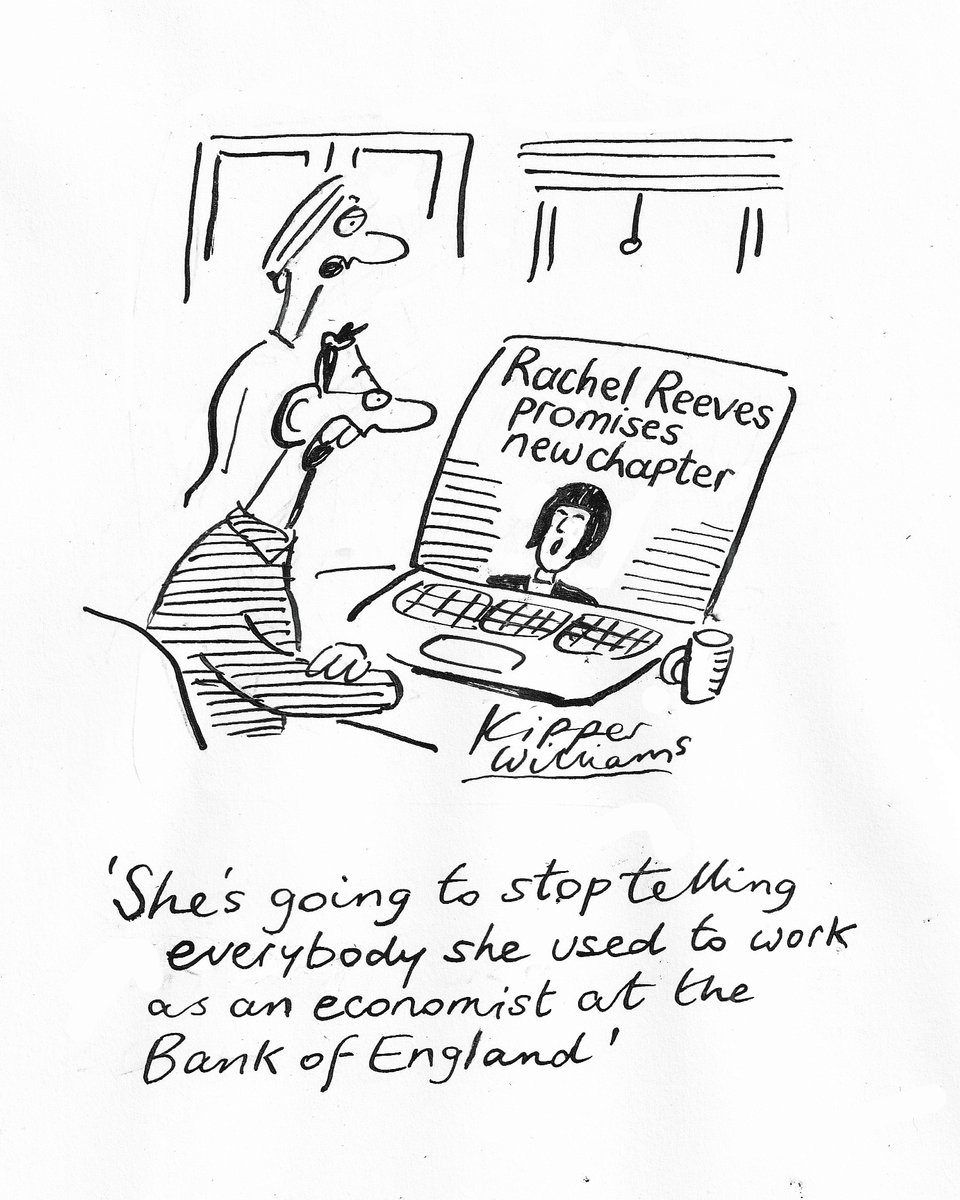 Rachel Reeves
promises
new chapter
Kipper
Williams
'She's going to stop telling
everybody she used to work
as an economist at the
Bank of England'